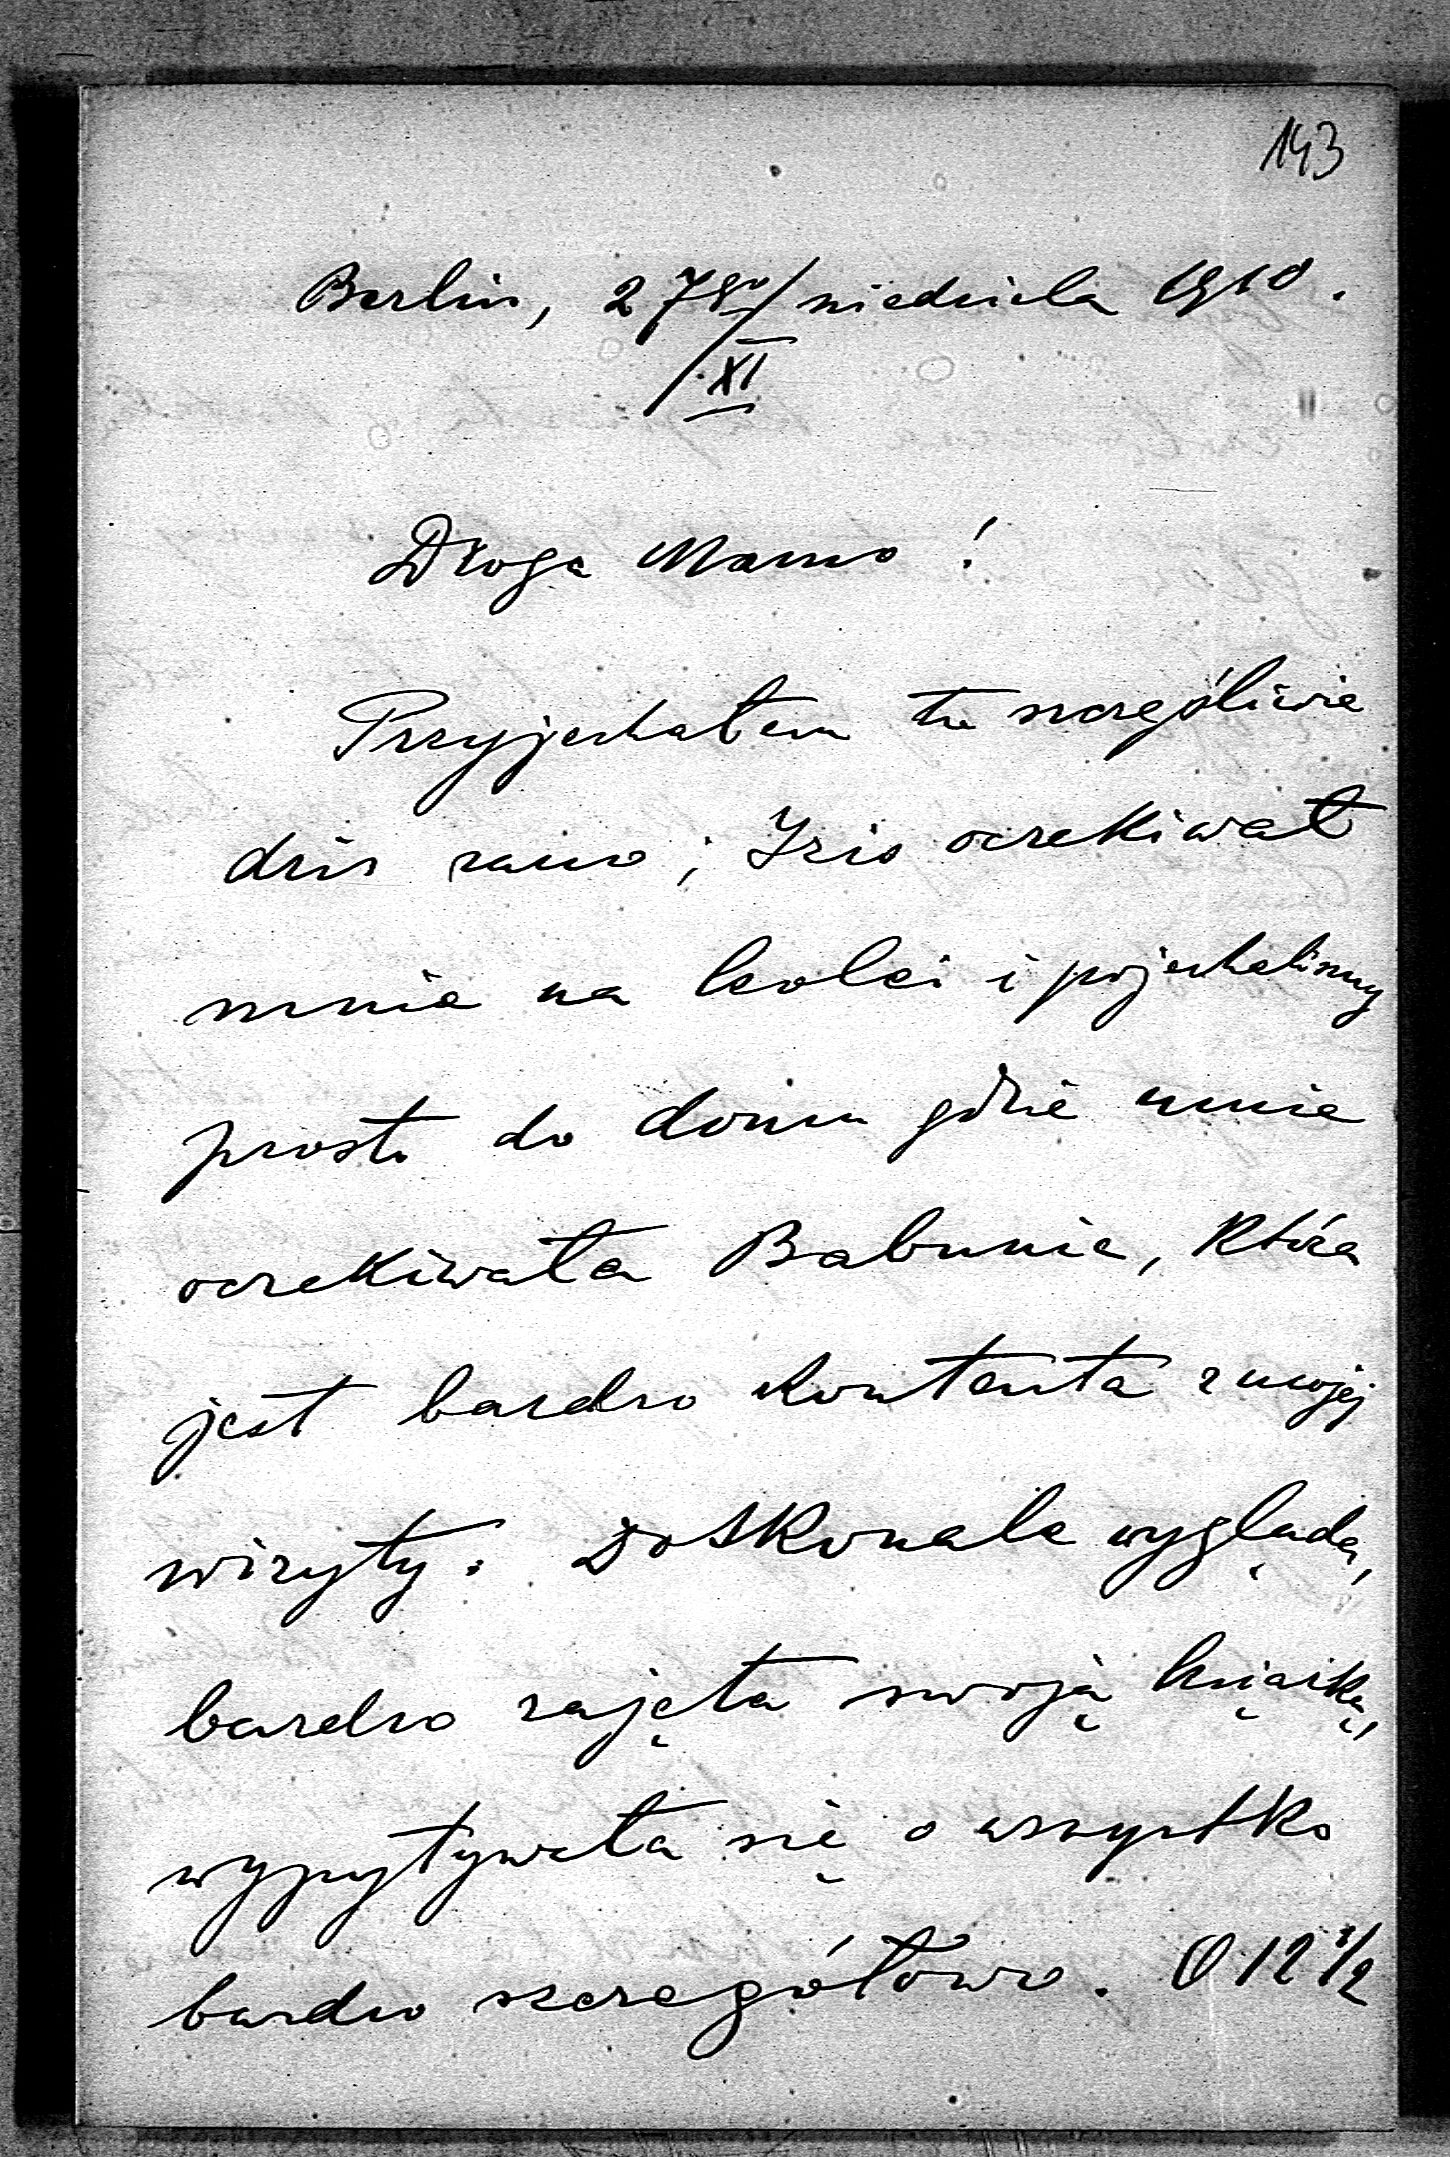 143
Berlin, 27go/XI niedziela 1910.
Droga Mamo!
Przyjechałem tu szczęśliwie
dziś rano; Izio oczekiwał
mnie na kolei i pojechaliśmy
prosto do domu gdzie mnie
oczekiwała Babunia, która
jest bardzo kontenta z mojej
wizyty. Doskonale wygląda,
bardzo zajęta swoją książką,
wypytywała się o wszystko
bardzo szczegółowo. O 12 1/2